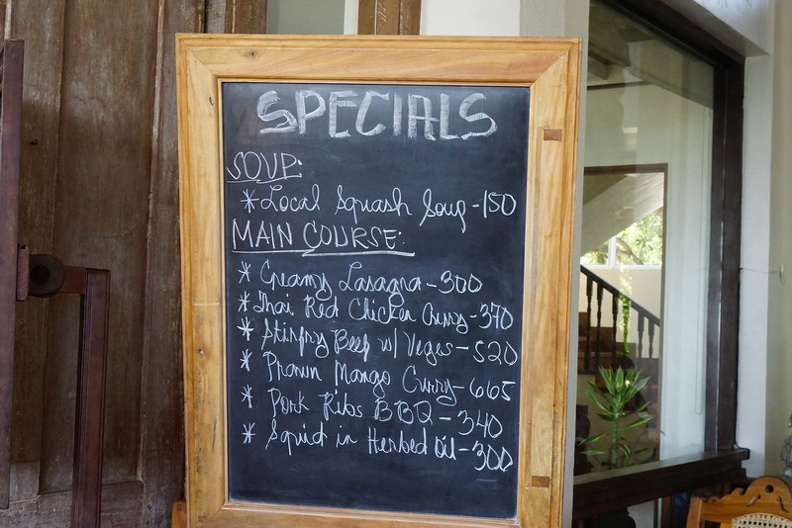 SPECIALS
SOUP:
* Local Squash Soup - 150
MAIN COURSE:
* Creamy Lasagna - 300
* Thai Red Chicken Curry - 370
* Stirfry Beef w/ Veges - 520
* Prawn Mango Curry - 665
* Pork Ribs BBQ - 340
* Squid in Herbed Oil - 300